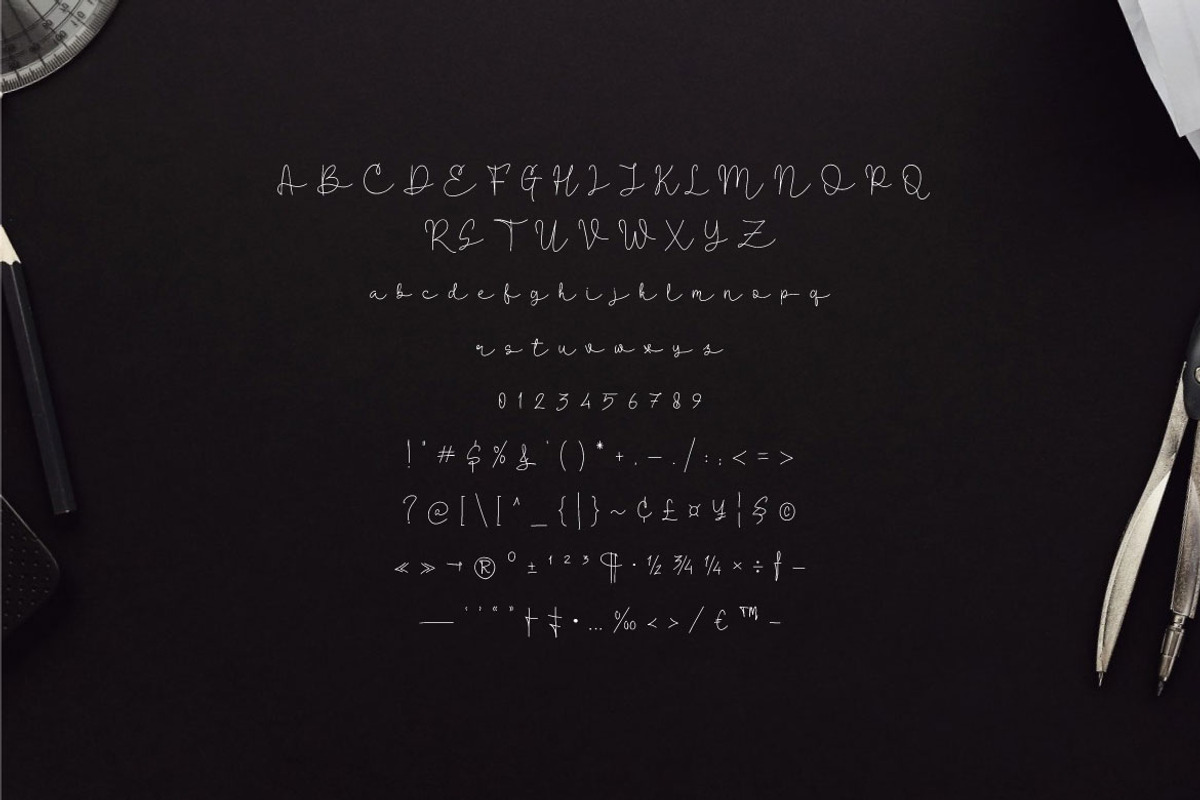 A B C D E F G H I J K L M N O P Q
R S T U V W X Y Z
a b c d e f g h i j k l m n o p q
r s t u v w x y z
0 1 2 3 4 5 6 7 8 9
! " # $ % & ' ( ) * + , – . / : ; < = >
? @ [ \ [ ^ _ { | } ~ ¢ £ ¤ ¥ ¦ § ©
« » ¬ ® º ± ¹ ² ³ ¶ · ½ ¾ ¼ × ÷ ƒ –
— ‘ ’ “ ” † ‡ • … ‰ ‹ › / € ™ −